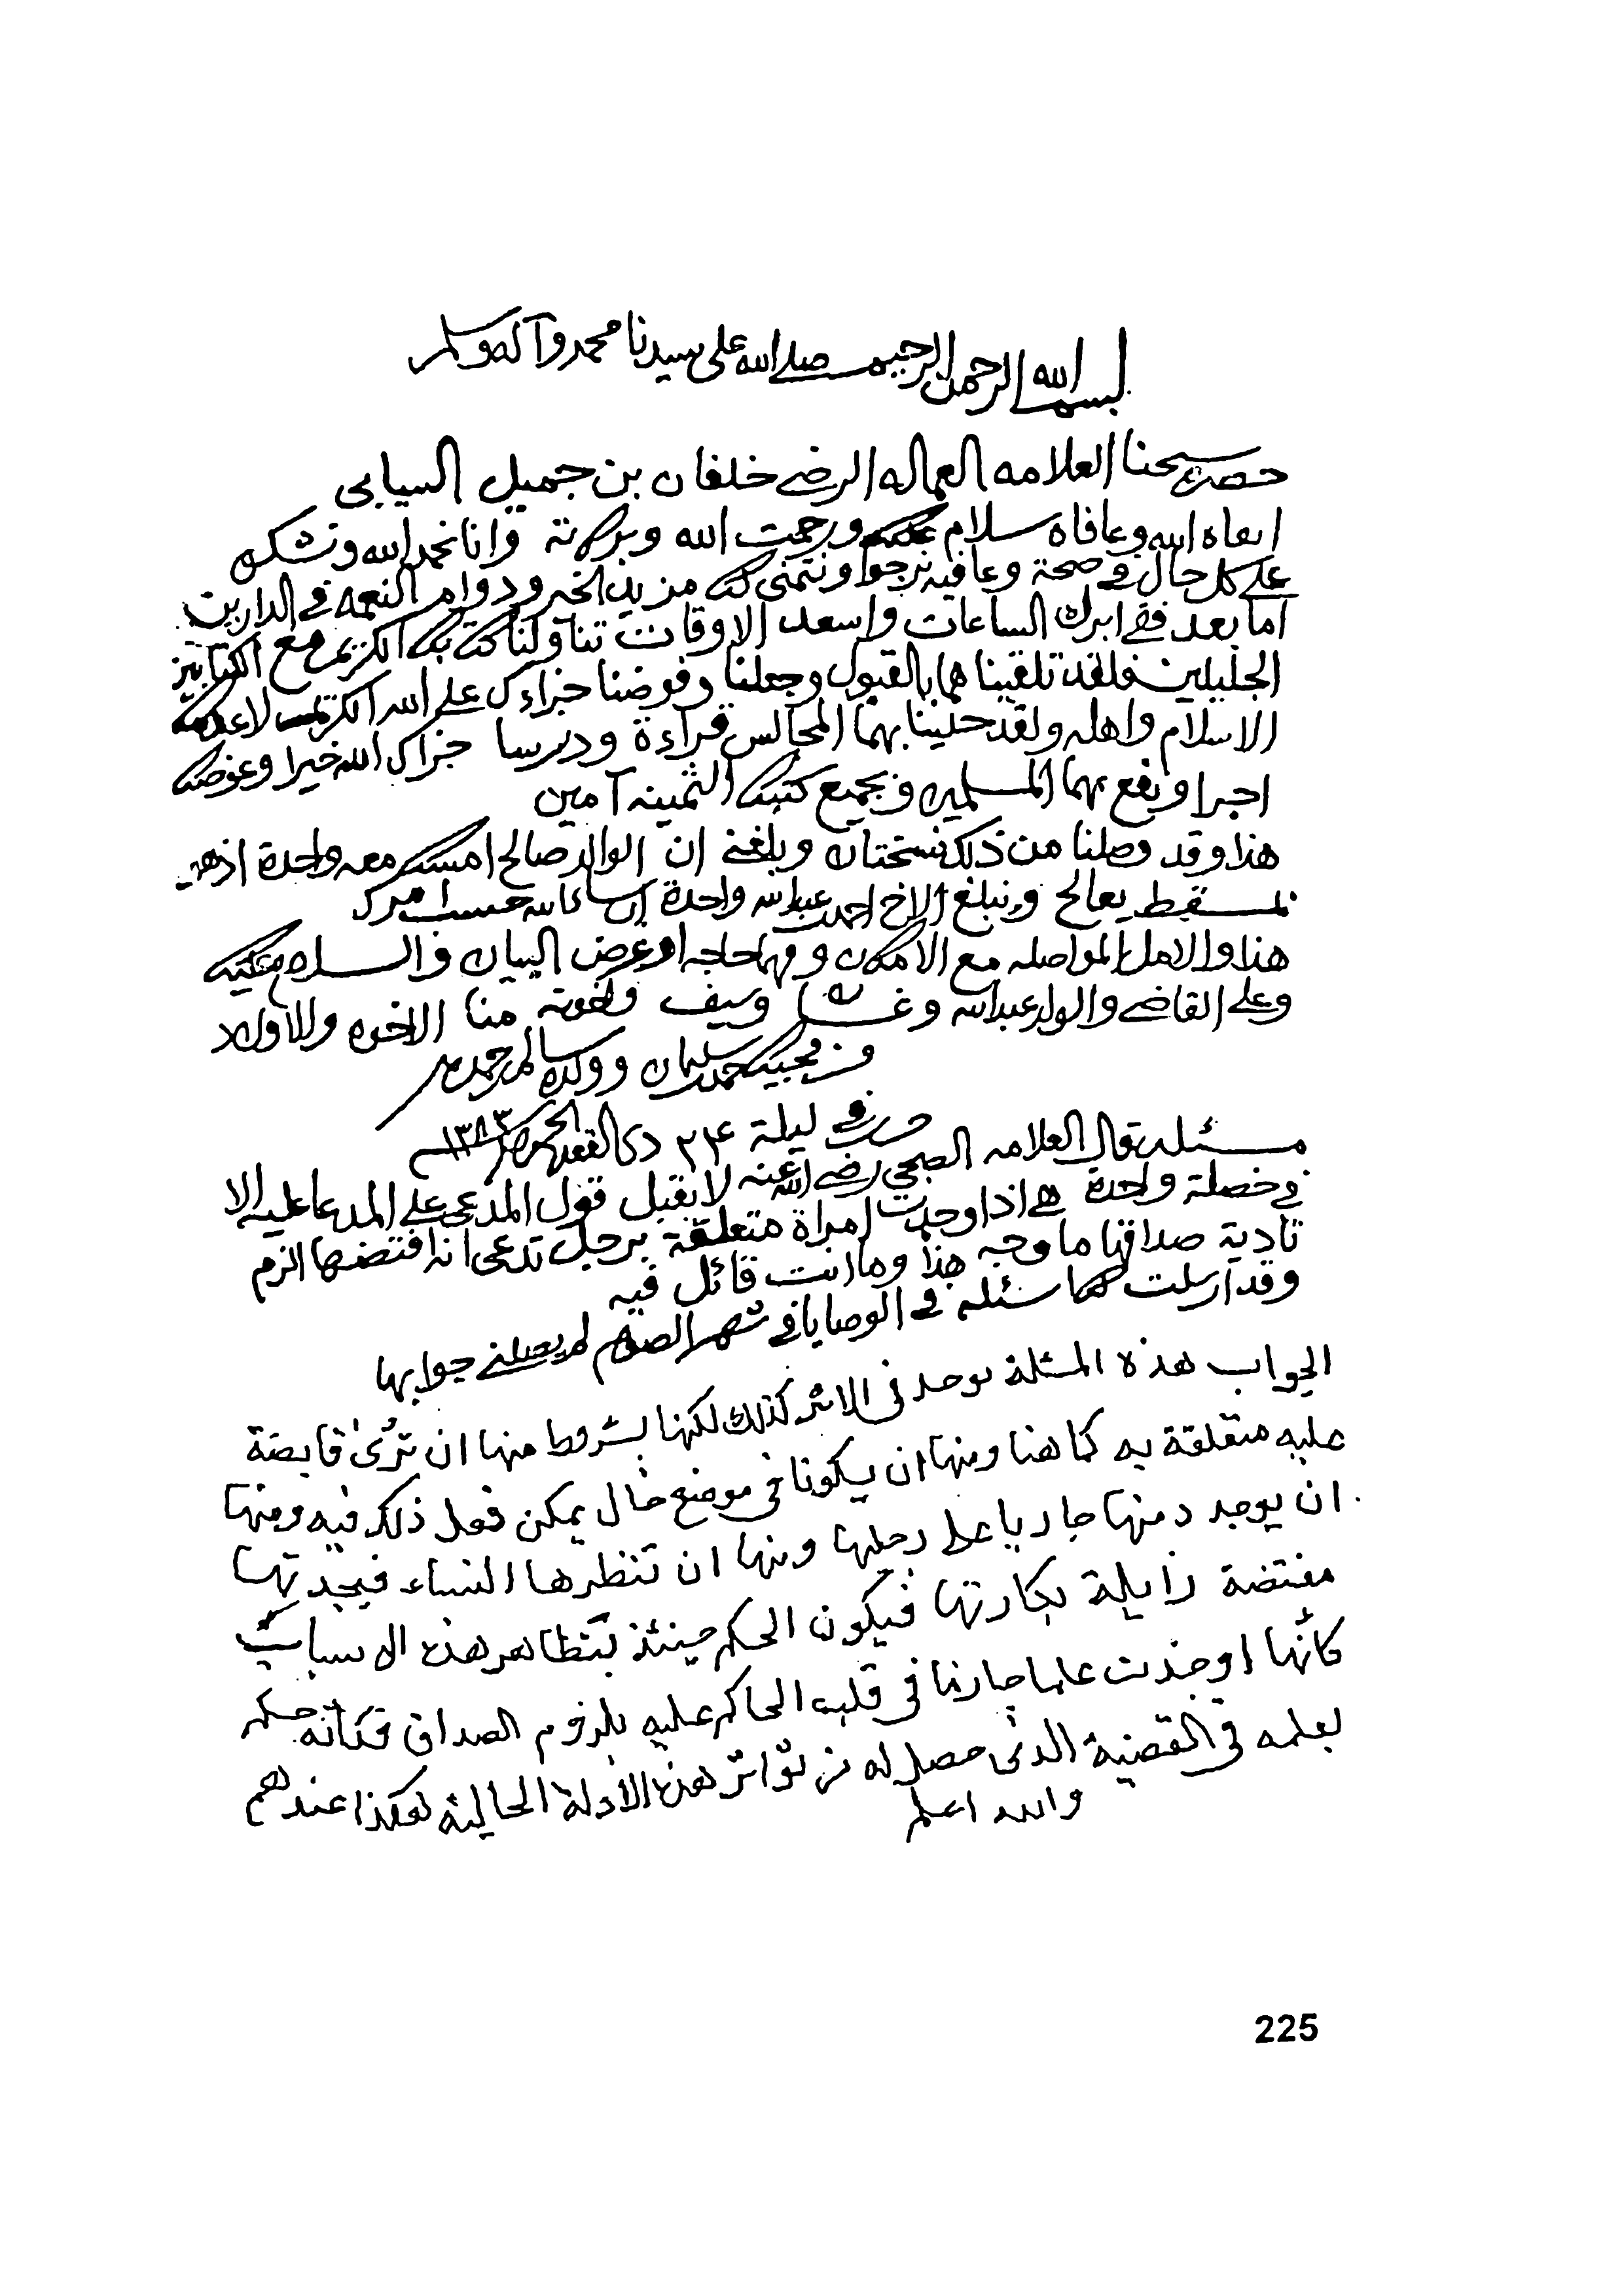 بسم الله الرحمن الرحيم صلى الله على سيدنا محمد وآله وسلم
حضرة شيخنا العلامه العماله الرضي خلفان بن جميل السيابي
ابقاه الله وعافاه سلام عليكم ورحمت الله وبركاته وانا نحمد الله ونشكره
على كل حال في صحة وعافيه نرجوا ونتمنى لك مزيد الخير ودوام النعمه في الدارين
اما بعد ففي ابرك الساعات واسعد الاوقات تناولنا كتابك الكريم مع الكتابين
الجليلين فلقد تلقيناهما بالقبول وجعلنا وفوضنا جزاءك على الله الكريم لاعدمك
الاسلام واهله ولقد حلينا بهما المجالس قراءة ودرسا جزاك الله خيرا وعوضك
اجرا ونفع بهما المسلمين وبجميع كتبك الثمينه آمين
هذا وقد وصلنا من ذلك نسختان وبلغني ان الوالد صالح امسك معه واحدة اذهو
بمسقط يعالج ونبلغ الاخ احمد عبدالله واحدة ان شاءالله حسب امرك
هذا والامل المواصله مع الامكان ومهما حاجه او غرض البيان والسلام عليك
وعلى القاضي والولد عبدالله وسيف واخوته منا الاخوه والاولاد
من محبيك حمد سليمان وولده سالم حمد
حرر في ليلة ٢٤ ذي القعده الحرام ١٣٨٣
مسئله قال العلامه الصبحي رضي الله عنه لا يقبل قول المدعي على المدعا عليه الا
في خصلة واحدة هي اذا وجدت امراة متعلقة برجل تدعي انه افتضها الزم
تادية صداقها ما وجه هذا وما انت قائل فيه
وقد ارسلت لك مسئله في الوصايا في شهر الصوم لم يصلني جوابها
الجواب هذه المسئلة توجد في الاثر كذلك لكنها بشروط منها ان ترى قابضة
عليه متعلقة به كما هنا ومنها ان يكونا في موضع خال يمكن فعل ذلك فيه ومنها
ان يوجد دمنها جاريا على رجليها ومنها ان تنظرها النساء فيجدنها
مفتضة زايلة بكارتها فيكون الحكم حينئذ بتظاهر هذه الاسباب
كأنها اوجدت علما جازما في قلب الحاكم عليه بلزوم الصداق فكأنه حكم
بعلمه في القضية الذي حصل له من تواتر هذه الأدلة الحالية هكذا عندهم
والله اعلم
225